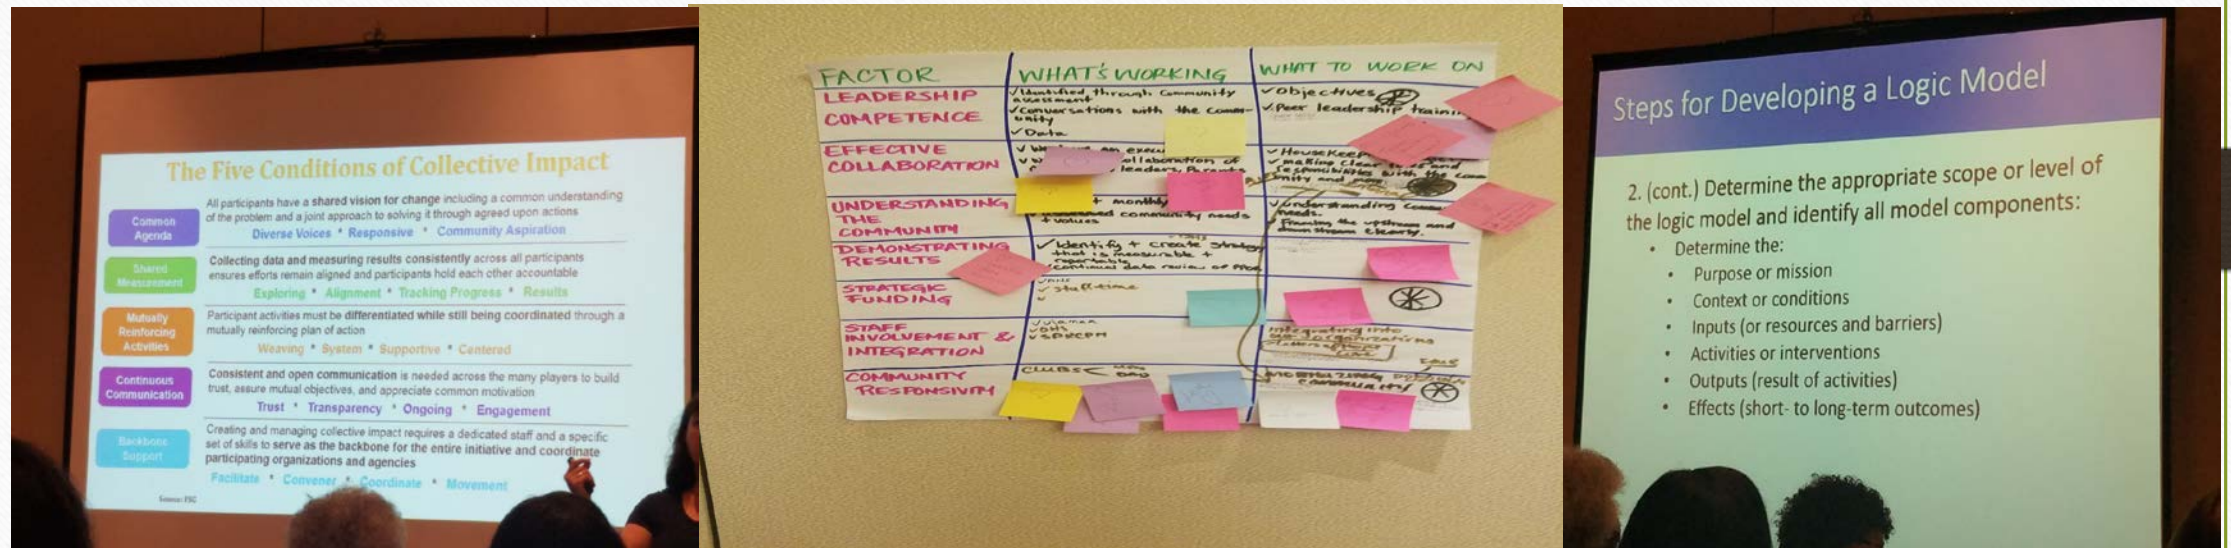 The Five Conditions of Collective Impact
Common
Agenda
All participants have a shared vision for change including a common understanding
of the problem and a joint approach to solving it through agreed upon actions
Diverse Voices * Responsive * Community Aspiration
Shared
Measurement
Collecting data and measuring results consistently across all participants
ensures efforts remain aligned and participants hold each other accountable
Exploring * Alignment * Tracking Progress * Results
Mutually
Reinforcing
Activities
Participant activities must be differentiated while still being coordinated through a
mutually reinforcing plan of action
Weaving * System * Supportive * Centered
Continuous
Communication
Consistent and open communication is needed across the many players to build
trust, assure mutual objectives, and appreciate common motivation
Trust * Transparency * Ongoing * Engagement
Backbone
Support
Creating and managing collective impact requires a dedicated staff and a specific
set of skills to serve as the backbone for the entire initiative and coordinate
participating organizations and agencies
Facilitate * Convener * Coordinate * Movement
Source: FSG
FACTOR
WHAT'S WORKING
WHAT TO WORK ON
LEADERSHIP
COMPETENCE
✓Identified through Community
assessment
✓Conversations with the comm-
unity
✓Data
✓Objectives
✓Peer leadership
EFFECTIVE
COLLABORATION
leaders, Parents
✓HouseKeep
✓making clear
responsibilities with the com
UNDERSTANDING
THE
COMMUNITY
+ monthly
community needs
+ values
✓understanding
needs.
upstream and
DEMONSTRATING
RESULTS
✓Identify + create strategy
that is measurable +
reportable
continual data review of
STRATEGIC
FUNDING
✓staff-time
STAFF
INVOLVEMENT &
INTEGRATION
Integrating into
organizations
COMMUNITY
RESPONSIVITY
CLUBS
community
Steps for Developing a Logic Model
2. (cont.) Determine the appropriate scope or level of
the logic model and identify all model components:
• Determine the:
• Purpose or mission
• Context or conditions
• Inputs (or resources and barriers)
• Activities or interventions
• Outputs (result of activities)
• Effects (short- to long-term outcomes)